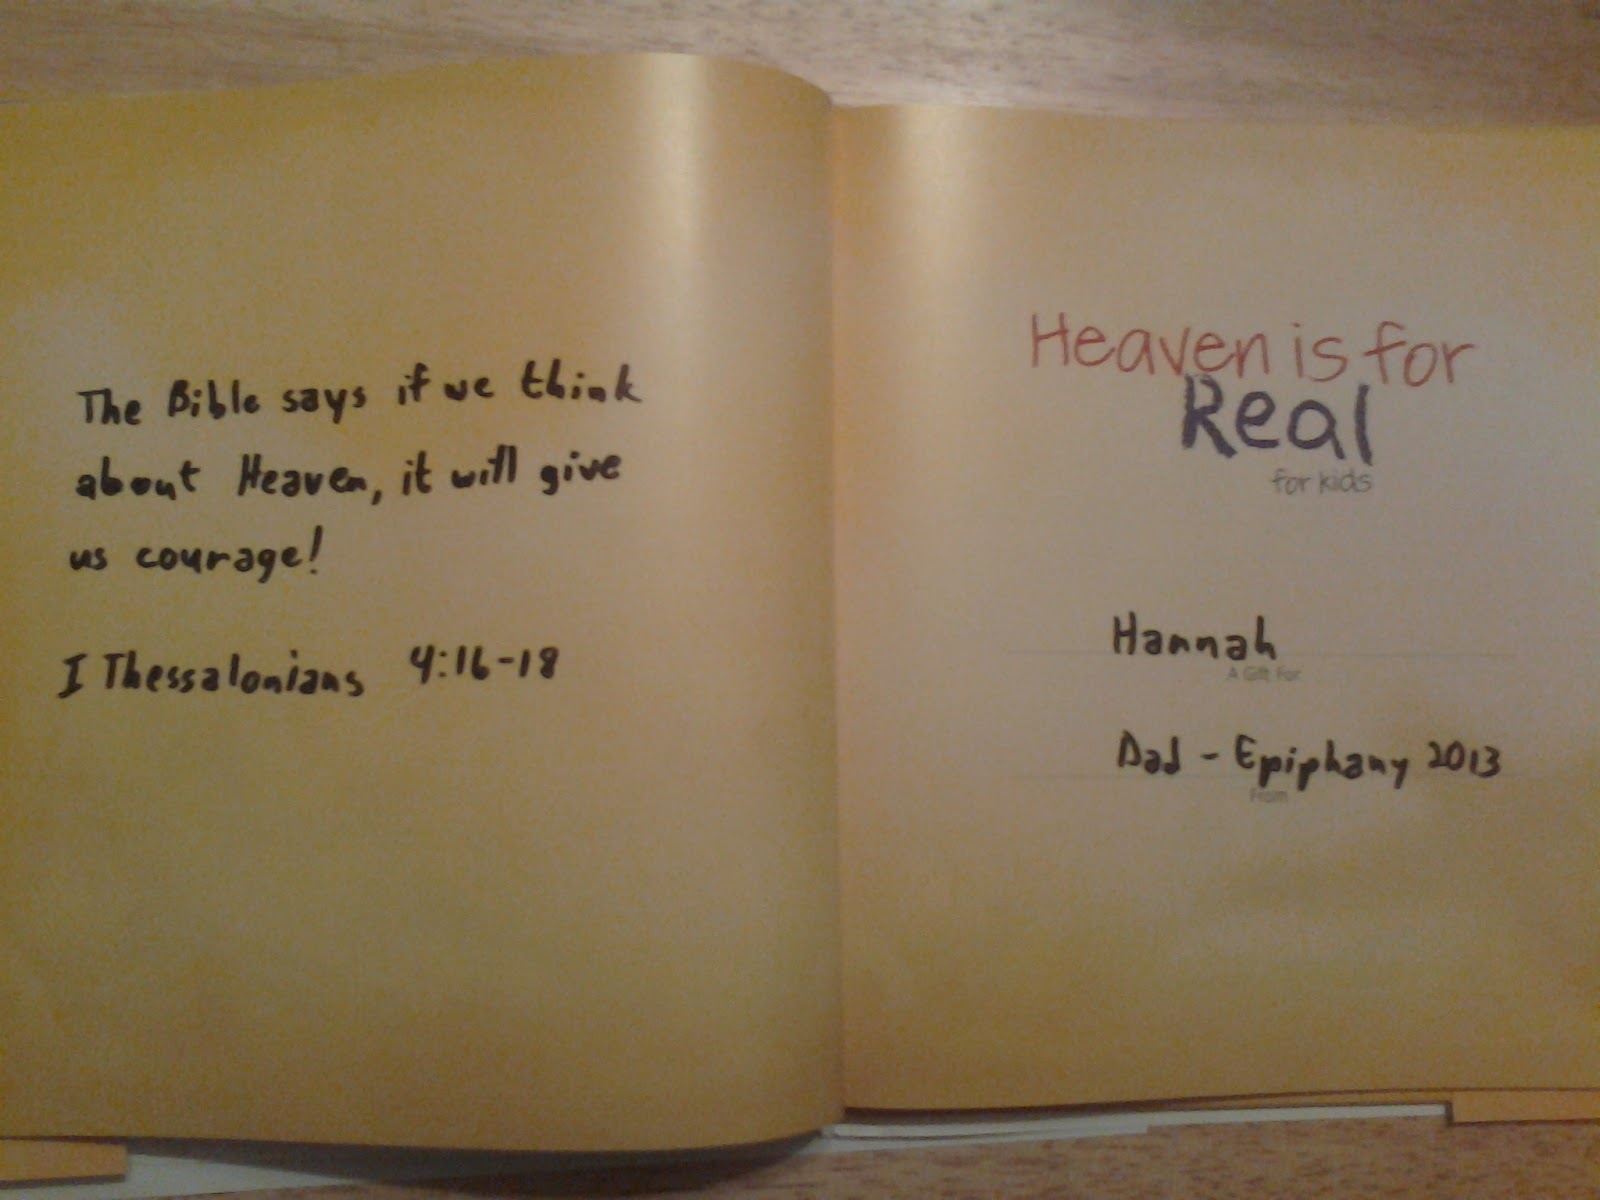 The Bible says if we think
about Heaven, it will give
us courage!
I Thessalonians 4:16-18
Heaven is for
Real
for kids
Hannah
A Gift For
Dad - Epiphany 2013
From